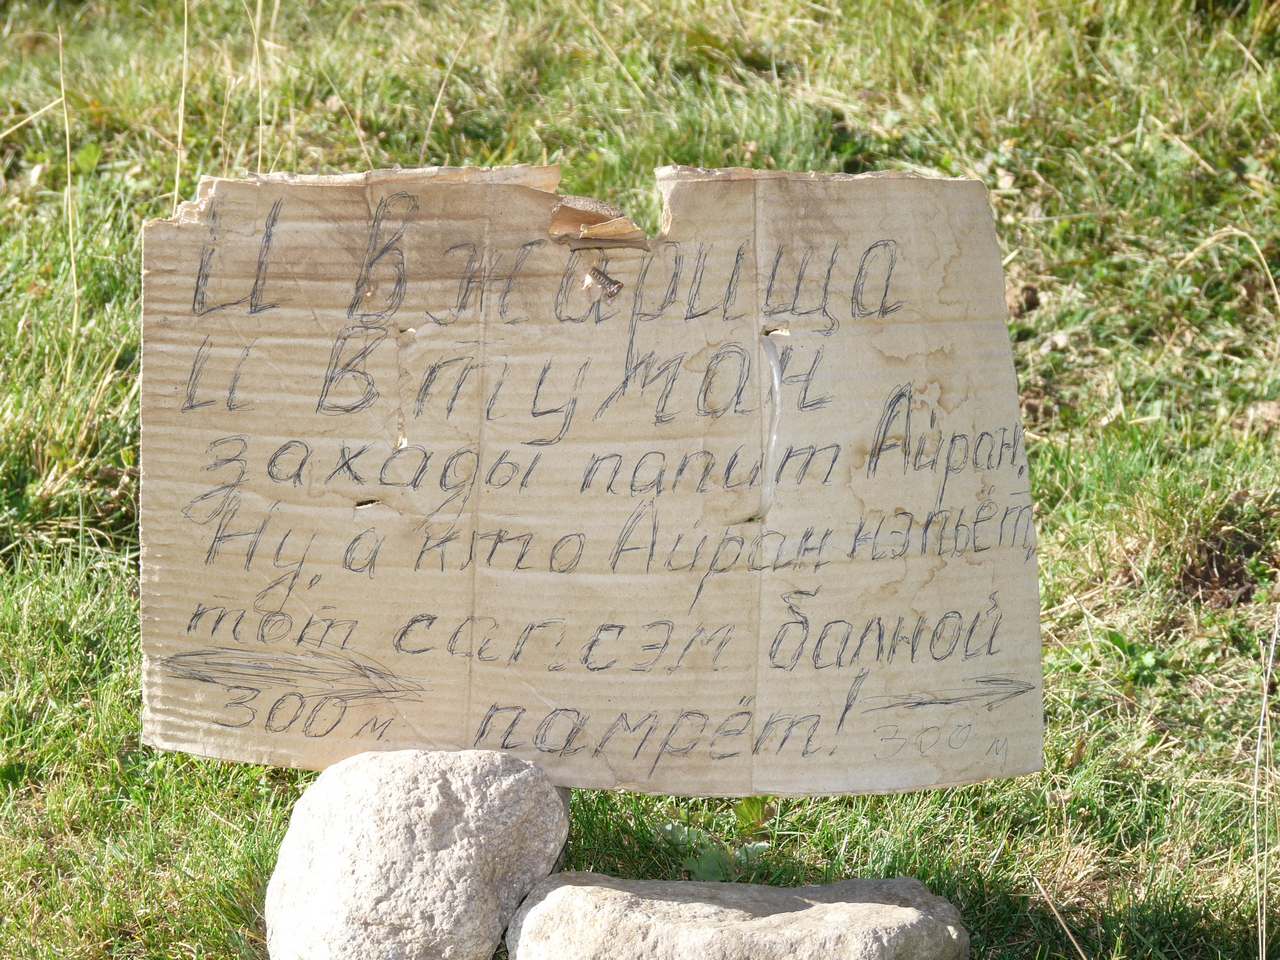 И В жарища
и В туман
захады папит Айран.
Ну, а кто Айран нэпьёт,
тот сапсэм балной
300 м. памрёт! 300 м